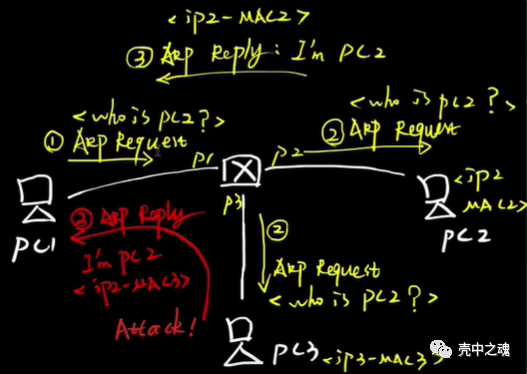 <ip2-MAC2>
③ ARP Reply: I'm PC2
<who is pc2?>
① ARP Request
<who is pc2?>
② ARP Request
P1
P2
P3
<ip2
MAC2>
PC1
PC2
③ ARP Reply
I'm PC2
<ip2-MAC3>
Attack!
②
ARP Request
<who is pc2?>
PC3 <ip3-MAC3>
壳中之魂